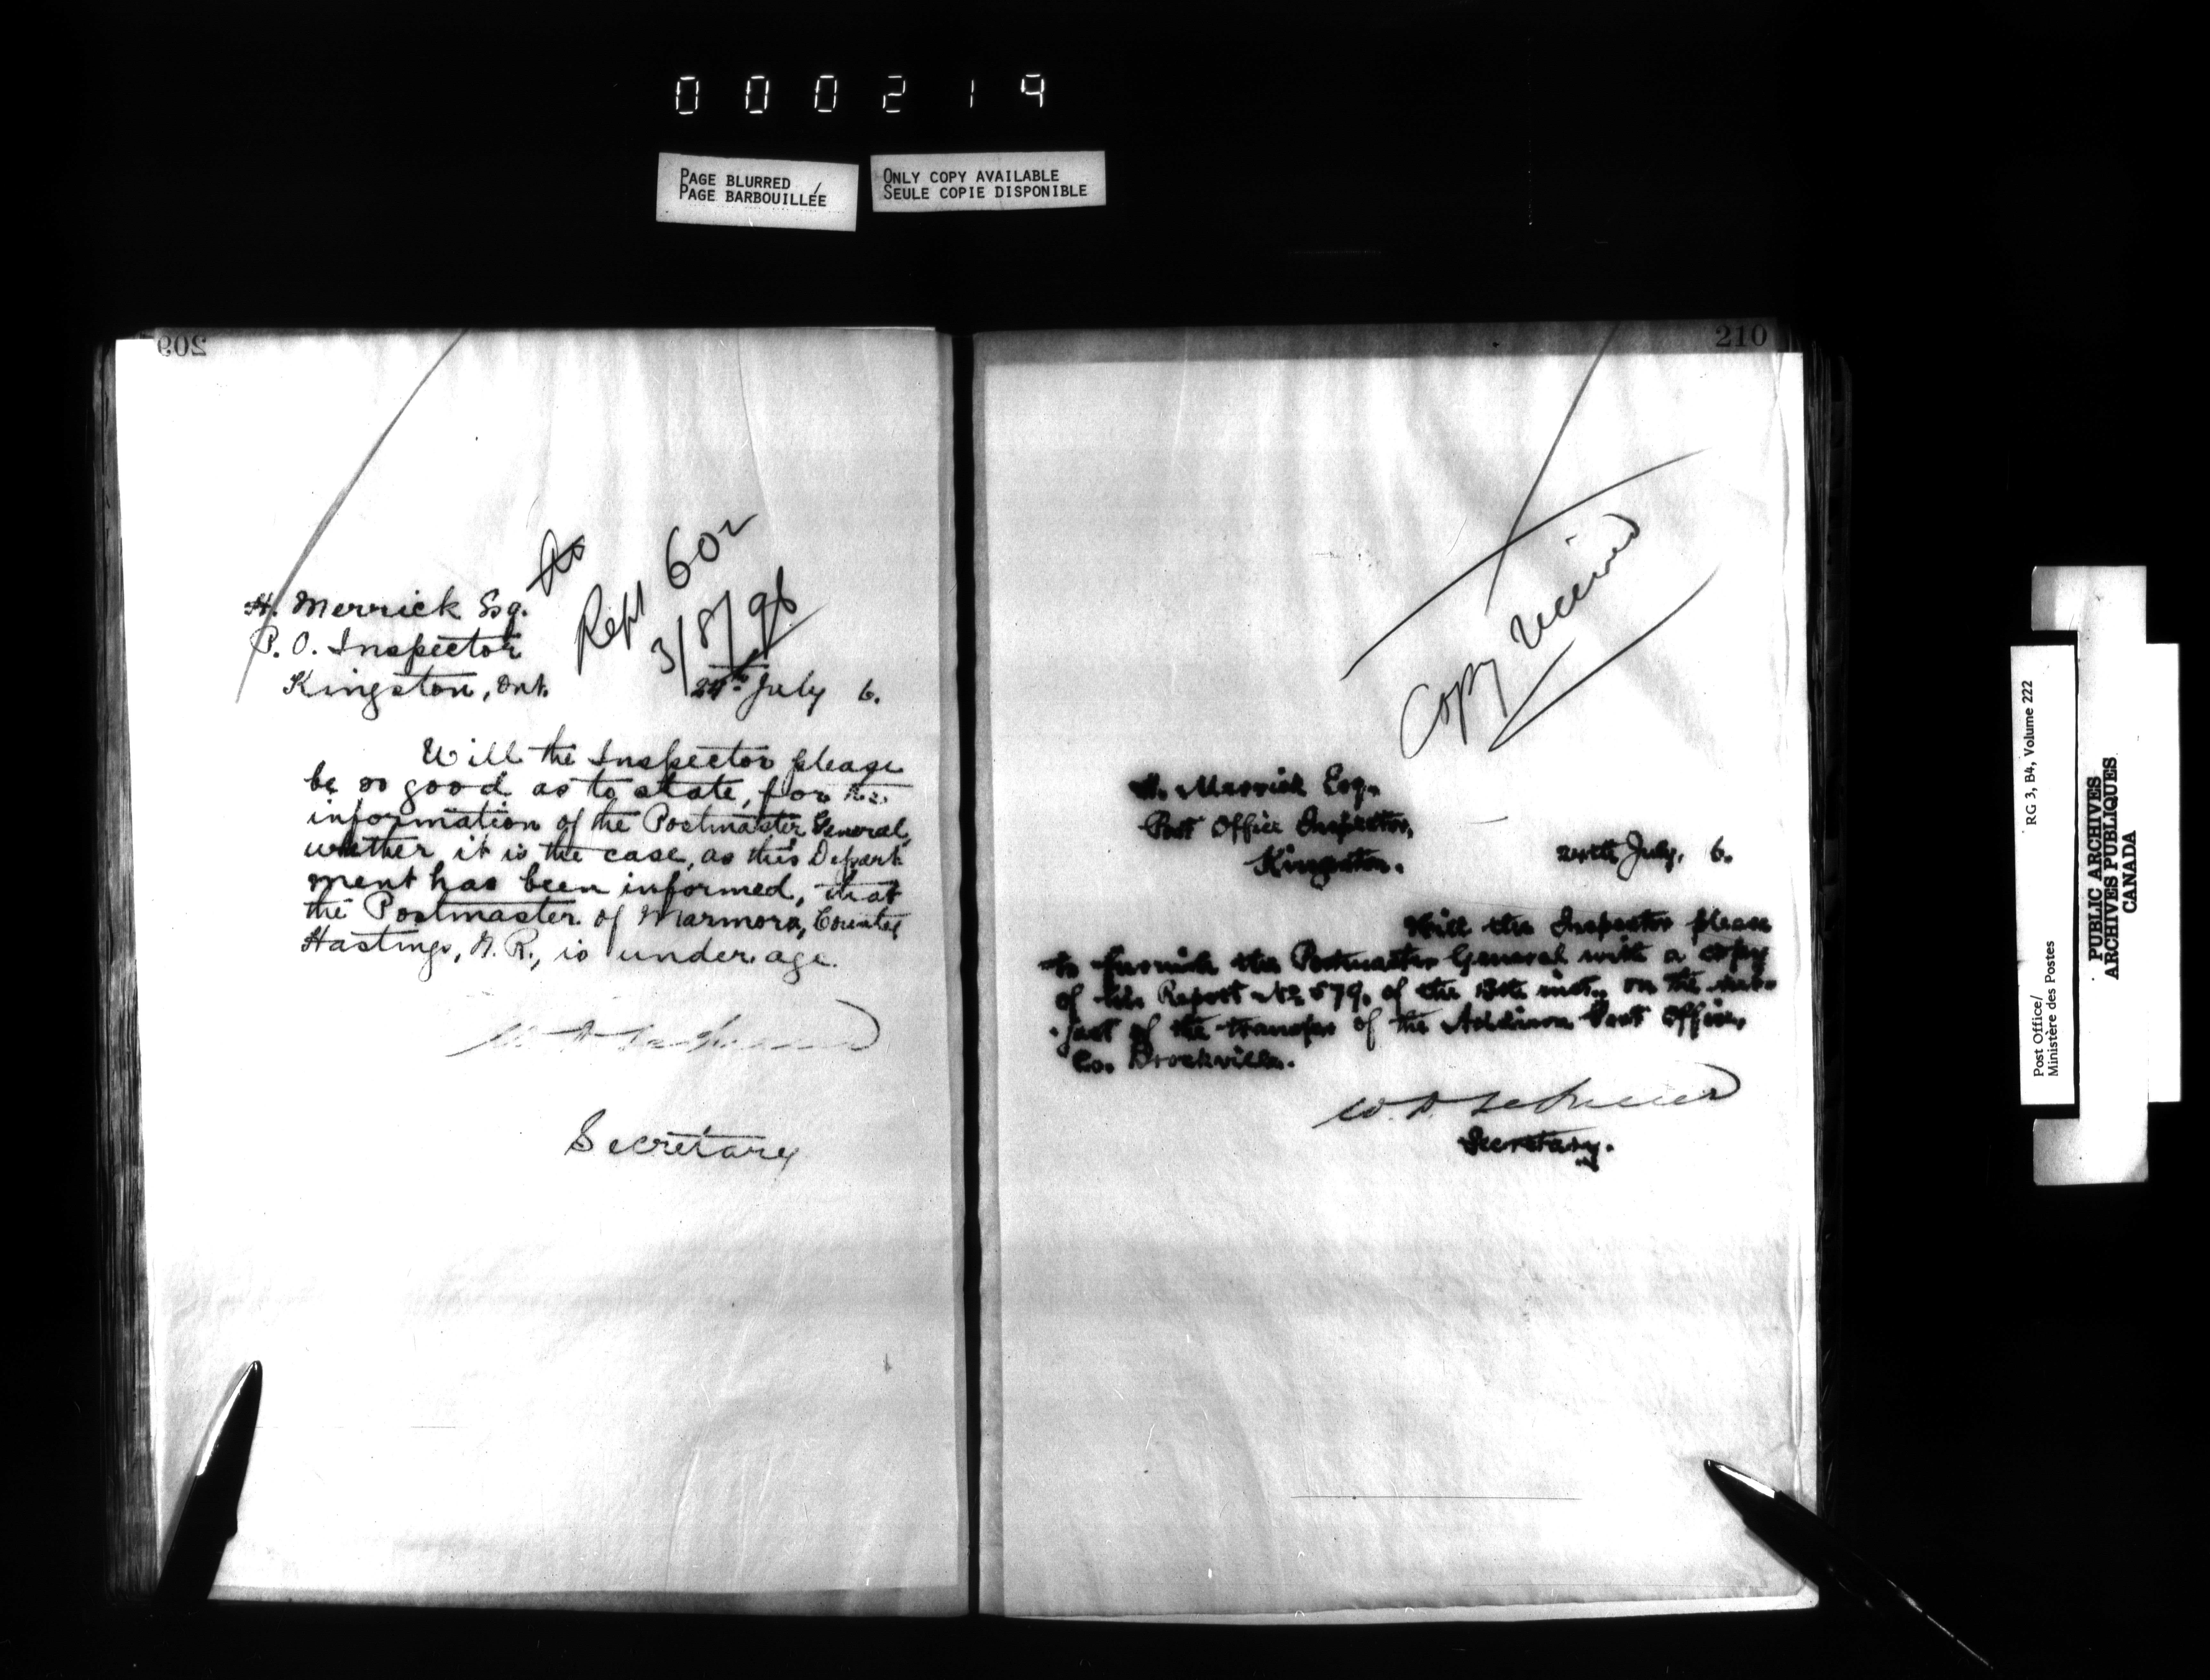 000219
PAGE BLURRED /
PAGE BARBOUILLÉE
ONLY COPY AVAILABLE
SEULE COPIE DISPONIBLE
209
Rept 602
3/8/96
H. Merrick Esq.
P. O. Inspector
Kingston, Ont.
24th July 6.
Will the Inspector please
be so good as to state, for the
information of the Postmaster General,
whether it is the case, as this Depart
ment has been informed, that
the Postmaster of Marmora, County
Hastings, N. R., is under age.
Secretary
210
Copy received
H. Merrick Esq.
Post Office Inspector,
Kingston.
24th July, 6.
Will the Inspector please
to furnish the Postmaster General with a copy
of his Report No 579, of the 13th inst., on the sub-
ject of the transfer of the Addison Post Office,
Co. Brockville.
Secretary.
Post Office/
Ministère des Postes
RG 3, B4, Volume 222
PUBLIC ARCHIVES
ARCHIVES PUBLIQUES
CANADA